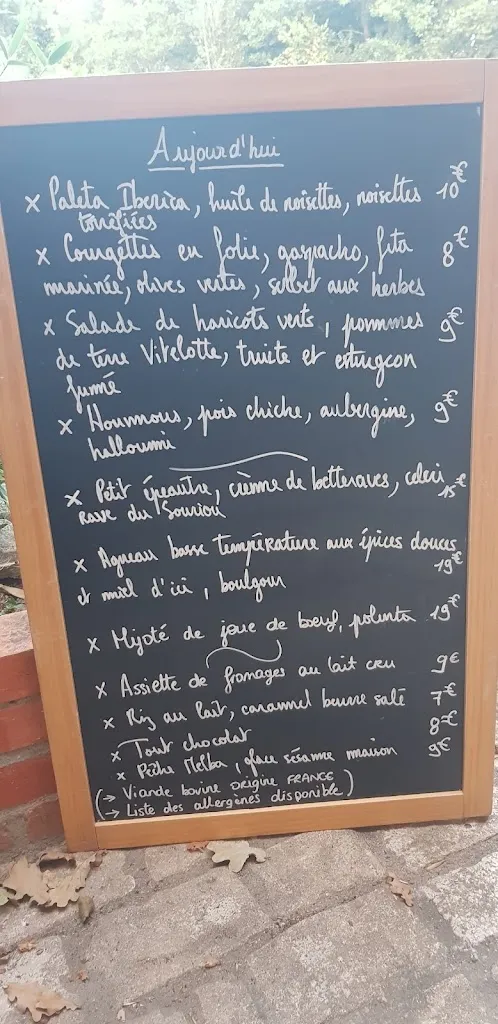 Aujourd'hui
x Paleta Iberica, huile de noisettes, noisettes 10€
torréfiées
x Courgettes en folie, gaspacho, feta 8€
marinée, olives vertes, sorbet aux herbes
x Salade de haricots verts, pommes 9€
de terre Vitelotte, truite et esturgeon
fumé
x Houmous, pois chiche, aubergine, 9€
halloumi
x Petit épeautre, crème de betteraves, celeri 15€
rave du
x Agneau basse température aux épices douces 19€
et miel d'ici, boulgour
x Mijoté de joue de boeuf, polenta 19€
x Assiette de fromages au lait cru 9€
x Riz au lait, caramel beurre salé 7€
x Tout chocolat 8€
x Pêche Melba, glace sésame maison 9€
(→ Viande bovine origine FRANCE
→ Liste des allergènes disponible)